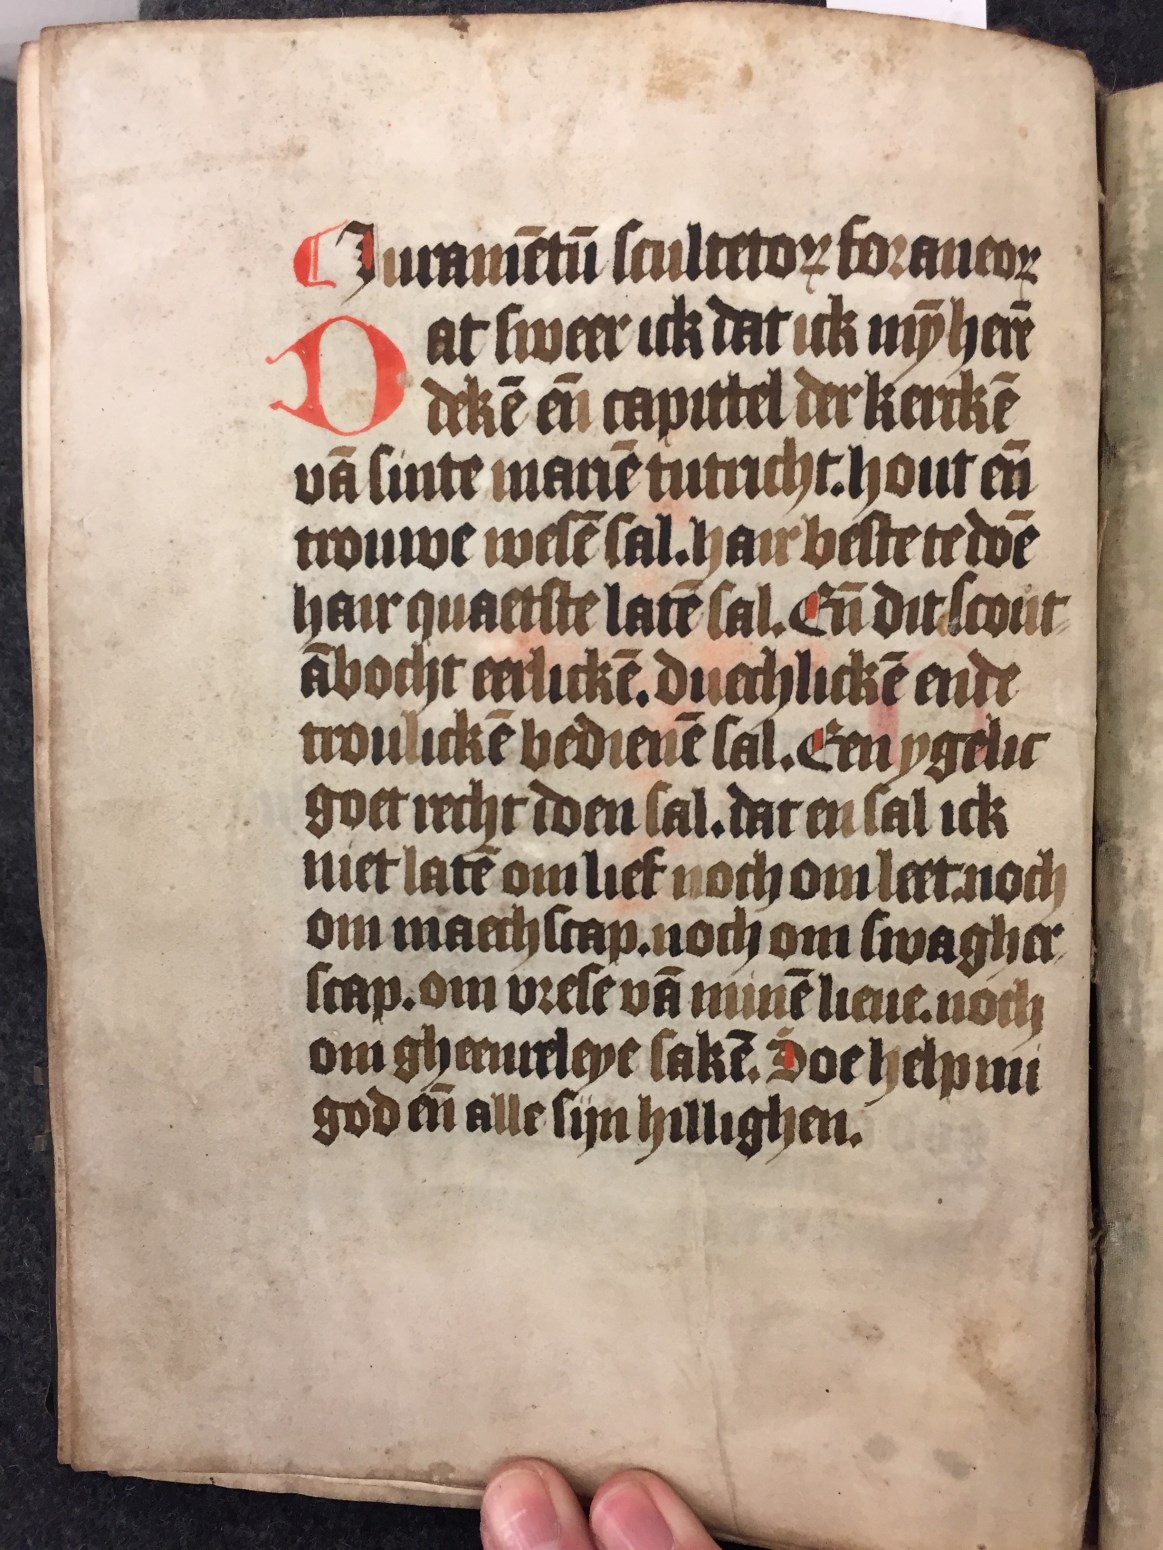 Iuramētū scultetoꝝ foraneoꝝ
Dat sweer ick dat ick mȳ herē
dekē eñ capittel der kerckē
vā sinte mariē tutricht. hout eñ
trouwe wesē sal. hair beste te doē
hair quaetste latē sal. Eñ dit scout-
ābocht eerlickē. duechlickē ende
troulickē bedienē sal. Een ygelic
goet recht doen sal. dat en sal ick
niet latē om lief noch om leet. noch
om maechscap. noch om swagher-
scap. om vrese vā minē lieue. noch
om gheenreleye sakē. Soe help mi
god eñ alle sijn hillighen.